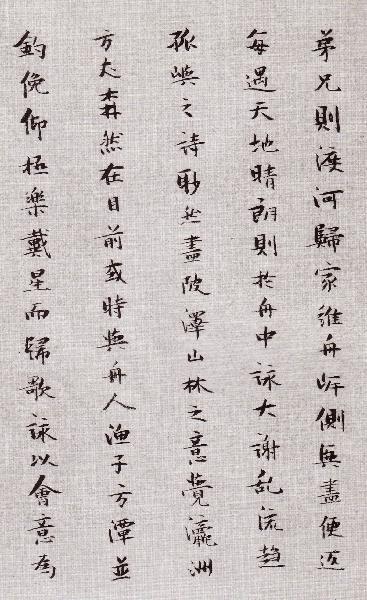 弟兄則渡河歸家維舟岸側興盡便返
每遇天地晴朗則於舟中詠大謝乱流趨
孤嶼之詩眇然盡陂澤山林之意覺瀛洲
方丈森然在目前或時與舟人渔子方潭並
釣俛仰極樂戴星而歸歌詠以會意為